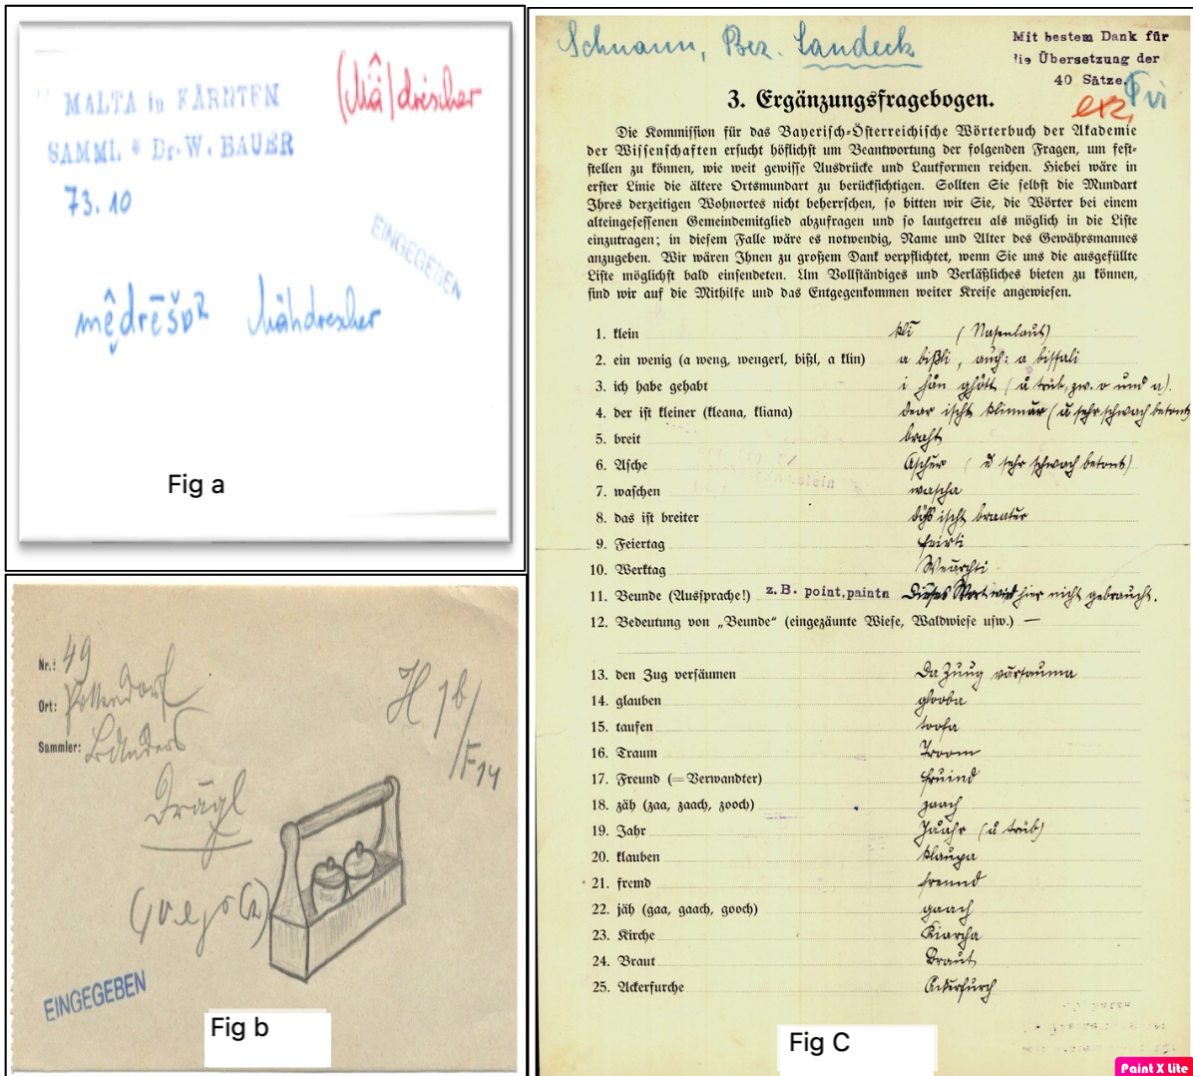 MALTA in KÄRNTEN
SAMML * Dr. W. BAUER
73.10
(Mä)drescher
EINGEGEBEN
mêdrēšɒʀ Mähdrescher
Fig a
Nr.: 49
Ort: Pottendorf
Sammler:
Trägl
H 1b/
F14
EINGEGEBEN
Fig b
Schnann, Bez. Landeck
Mit bestem Dank für
die Übersetzung der
40 Sätze.
3. Ergänzungsfragebogen.
Die Kommission für das Bayerisch-Österreichische Wörterbuch der Akademie
der Wissenschaften ersucht höflichst um Beantwortung der folgenden Fragen, um fest-
stellen zu können, wie weit gewisse Ausdrücke und Lautformen reichen. Hiebei wäre in
erster Linie die ältere Ortsmundart zu berücksichtigen. Sollten Sie selbst die Mundart
Ihres derzeitigen Wohnortes nicht beherrschen, so bitten wir Sie, die Wörter bei einem
alteingesessenen Gemeindemitglied abzufragen und so lautgetreu als möglich in die Liste
einzutragen; in diesem Falle wäre es notwendig, Name und Alter des Gewährsmannes
anzugeben. Wir wären Ihnen zu großem Dank verpflichtet, wenn Sie uns die ausgefüllte
Liste möglichst bald einsendeten. Um Vollständiges und Verläßliches bieten zu können,
sind wir auf die Mithilfe und das Entgegenkommen weiter Kreise angewiesen.
1. klein kli (Nasenlaut)
2. ein wenig (a weng, wengerl, bißl, a klin) a bißli, auch: a bissali
3. ich habe gehabt i hån ghött (å trüb, zw. o und a).
4. der ist kleiner (kleana, kliana) dear ischt klinnar (å sehr schwach betont)
5. breit braht
6. Asche Aschar (å sehr schwach betont)
7. waschen wascha
8. das ist breiter dös ischt braater
9. Feiertag feirti
10. Werktag Wearchti
11. Beunde (Aussprache!) z.B. point, paintn Dieses Wort wird hier nicht gebraucht.
12. Bedeutung von „Beunde“ (eingezäunte Wiese, Waldwiese usw.) —
13. den Zug versäumen Da Zuug vårsauma
14. glauben glooba
15. taufen toofa
16. Traum Troom
17. Freund (= Verwandter) fruind
18. zäh (zaa, zaach, zooch) zaach
19. Jahr Jåahr (å trüb)
20. klauben klaupa
21. fremd fremd
22. jäh (gaa, gaach, gooch) gaach
23. Kirche Kiarcha
24. Braut Braut
25. Ackerfurche Ackerfurch
Fig C
Paint X Lite